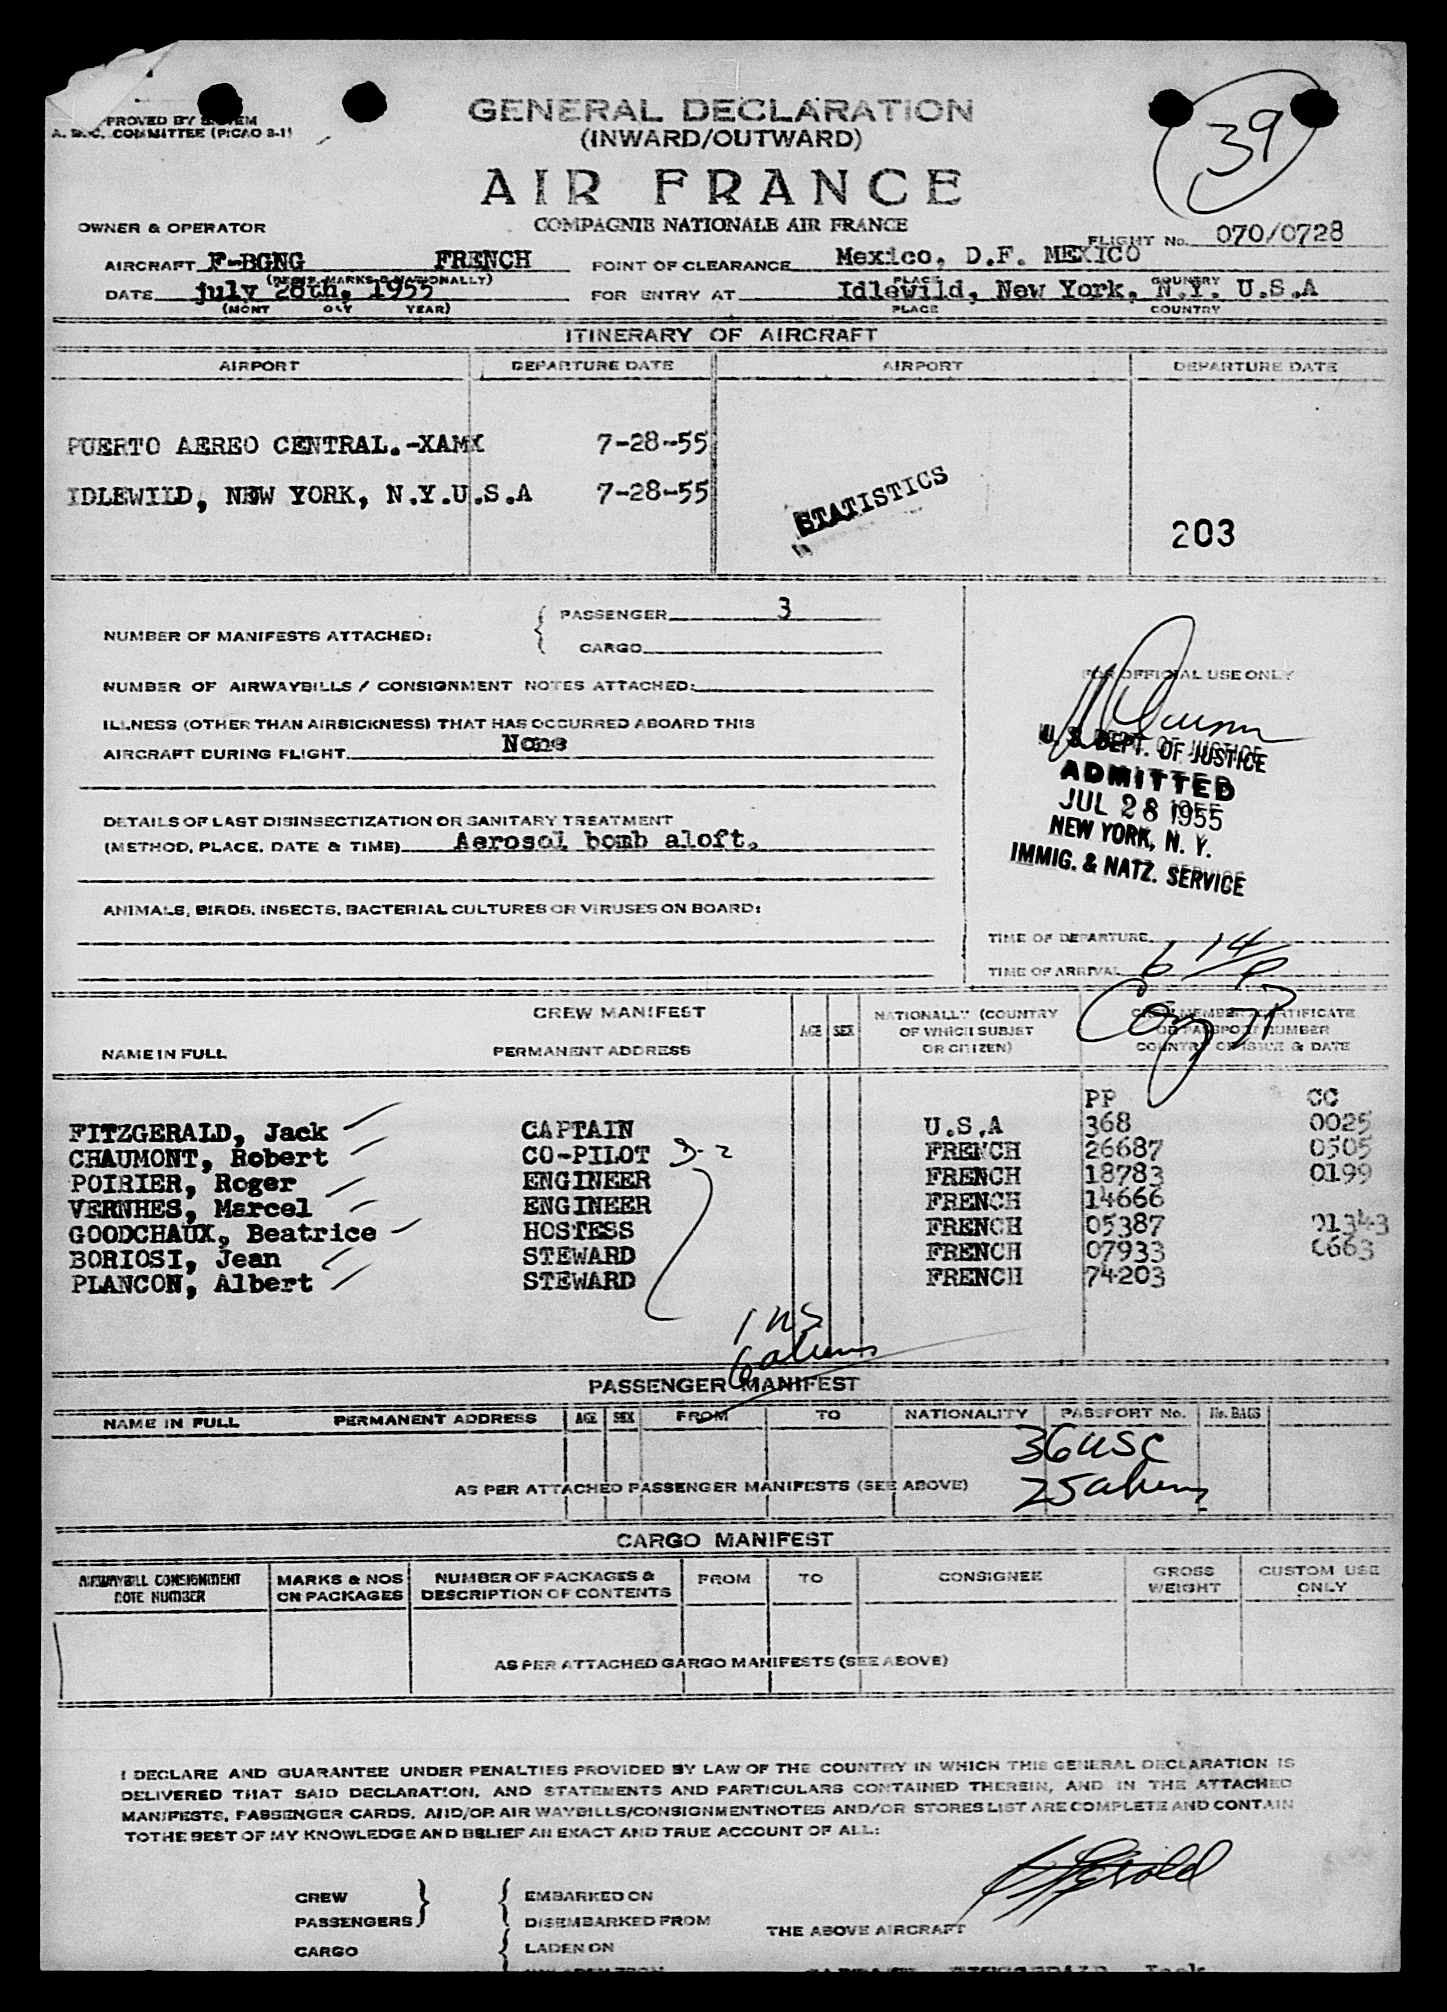 GENERAL DECLARATION
(INWARD/OUTWARD)
39
PROVED BY
COMMITTEE (PICAO 3-1)
AIR FRANCE
COMPAGNIE NATIONALE AIR FRANCE
OWNER & OPERATOR
FLIGHT No. 070/0728
AIRCRAFT F-BGNG FRENCH POINT OF CLEARANCE Mexico, D.F. MEXICO
PLACE COUNTRY
DATE july 28th, 1955 FOR ENTRY AT Idlewild, New York, N.Y. U.S.A
(MONT DAY YEAR) PLACE COUNTRY
ITINERARY OF AIRCRAFT
AIRPORT DEPARTURE DATE AIRPORT DEPARTURE DATE
PUERTO AEREO CENTRAL.-XAMX 7-28-55
IDLEWILD, NEW YORK, N.Y.U.S.A 7-28-55
STATISTICS
203
NUMBER OF MANIFESTS ATTACHED: PASSENGER 3
CARGO
NUMBER OF AIRWAYBILLS / CONSIGNMENT NOTES ATTACHED:
FOR OFFICIAL USE ONLY
ILLNESS (OTHER THAN AIRSICKNESS) THAT HAS OCCURRED ABOARD THIS
AIRCRAFT DURING FLIGHT None
U. S. DEPT. OF JUSTICE
ADMITTED
JUL 28 1955
NEW YORK, N. Y.
IMMIG. & NATZ. SERVICE
DETAILS OF LAST DISINSECTIZATION OR SANITARY TREATMENT
(METHOD, PLACE, DATE & TIME) Aerosol bomb aloft.
ANIMALS, BIRDS, INSECTS, BACTERIAL CULTURES OR VIRUSES ON BOARD:
TIME OF DEPARTURE
TIME OF ARRIVAL 6 14/P
CREW MANIFEST
NAME IN FULL PERMANENT ADDRESS AGE SEX NATIONALLY (COUNTRY
OF WHICH SUBJET
OR CITIZEN)
CREW MEMBER CERTIFICATE
OR PASSPORT NUMBER
COUNTRY OF ISSUE & DATE
PP CC
FITZGERALD, Jack CAPTAIN U.S.A 368 0025
CHAUMONT, Robert CO-PILOT D-2 FRENCH 26687 0505
POIRIER, Roger ENGINEER FRENCH 18783 0199
VERNHES, Marcel ENGINEER FRENCH 14666
GOODCHAUX, Beatrice HOSTESS FRENCH 05387 01343
BORIOSI, Jean STEWARD FRENCH 07933 0663
PLANCON, Albert STEWARD FRENCH 74203
1 US
6 aliens
PASSENGER MANIFEST
NAME IN FULL PERMANENT ADDRESS AGE SEX FROM TO NATIONALITY PASSPORT No. No. BAGS
36 USC
AS PER ATTACHED PASSENGER MANIFESTS (SEE ABOVE)
25 aliens
CARGO MANIFEST
AIRWAYBILL CONSIGNMENT
NOTE NUMBER
MARKS & NOS
ON PACKAGES
NUMBER OF PACKAGES &
DESCRIPTION OF CONTENTS
FROM TO CONSIGNEE
GROSS
WEIGHT
CUSTOM USE
ONLY
AS PER ATTACHED CARGO MANIFESTS (SEE ABOVE)
I DECLARE AND GUARANTEE UNDER PENALTIES PROVIDED BY LAW OF THE COUNTRY IN WHICH THIS GENERAL DECLARATION IS
DELIVERED THAT SAID DECLARATION, AND STATEMENTS AND PARTICULARS CONTAINED THEREIN, AND IN THE ATTACHED
MANIFESTS, PASSENGER CARDS, AND/OR AIR WAYBILLS/CONSIGNMENTNOTES AND/OR STORES LIST ARE COMPLETE AND CONTAIN
TOTHE BEST OF MY KNOWLEDGE AND BELIEF AN EXACT AND TRUE ACCOUNT OF ALL:
CREW EMBARKED ON
PASSENGERS DISEMBARKED FROM
THE ABOVE AIRCRAFT
CARGO LADEN ON